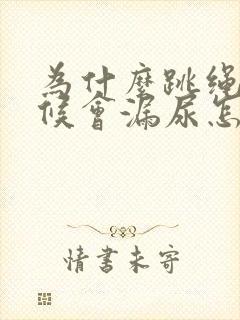 为什麼跳绳
候會漏尿怎
情書未寄